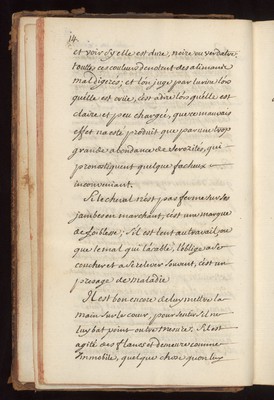 14.
et voir sy elle est dure, noire ou verdatre
toutes ces couleurs denotent des alimans
mal digerez; et l'on juge par l'urine lors
qu'elle est crüe, c'est a dire lors qu'elle est
claire et peu chargée, que ce mauvais
effet na esté produit que par une trop
grande abondance de serosites, qui
pronostiquent quelque facheux
inconvenient.
Si le cheval n'est pas ferme sur ses
jambes en marchant, c'est une marque
de foiblesse; s'il est lent au travail, ou
que le mal qui l'acable, l'oblige a se
coucher et a se relever souvant, c'est un
presage de maladie
Il est bon encore de luy mettre la
main sur le cœur, pour sentir s'il ne
luy bat point outre mesure. S'il est
agité des flancs et demeure comme
Immobile, quelque chose qu'on luy